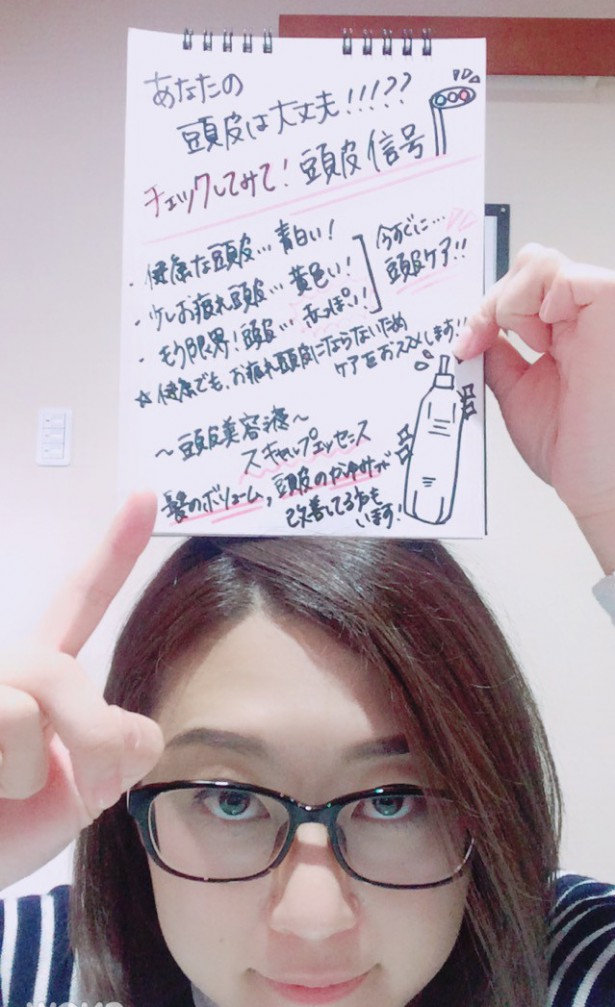 あなたの
頭皮は大丈夫!!!??
チェックしてみて!頭皮信号
・健康な頭皮…青白い!
・少しお疲れ頭皮…黄色い!
・もう限界!頭皮…赤っぽい!!
今すぐに…
頭皮ケア!!
☆健康でも、お疲れ頭皮にならないため
ケアをおススメします!!
～頭皮美容液～
スキャルプエッセンス
髪のボリューム,頭皮のかゆみ
改善してる方も
います!